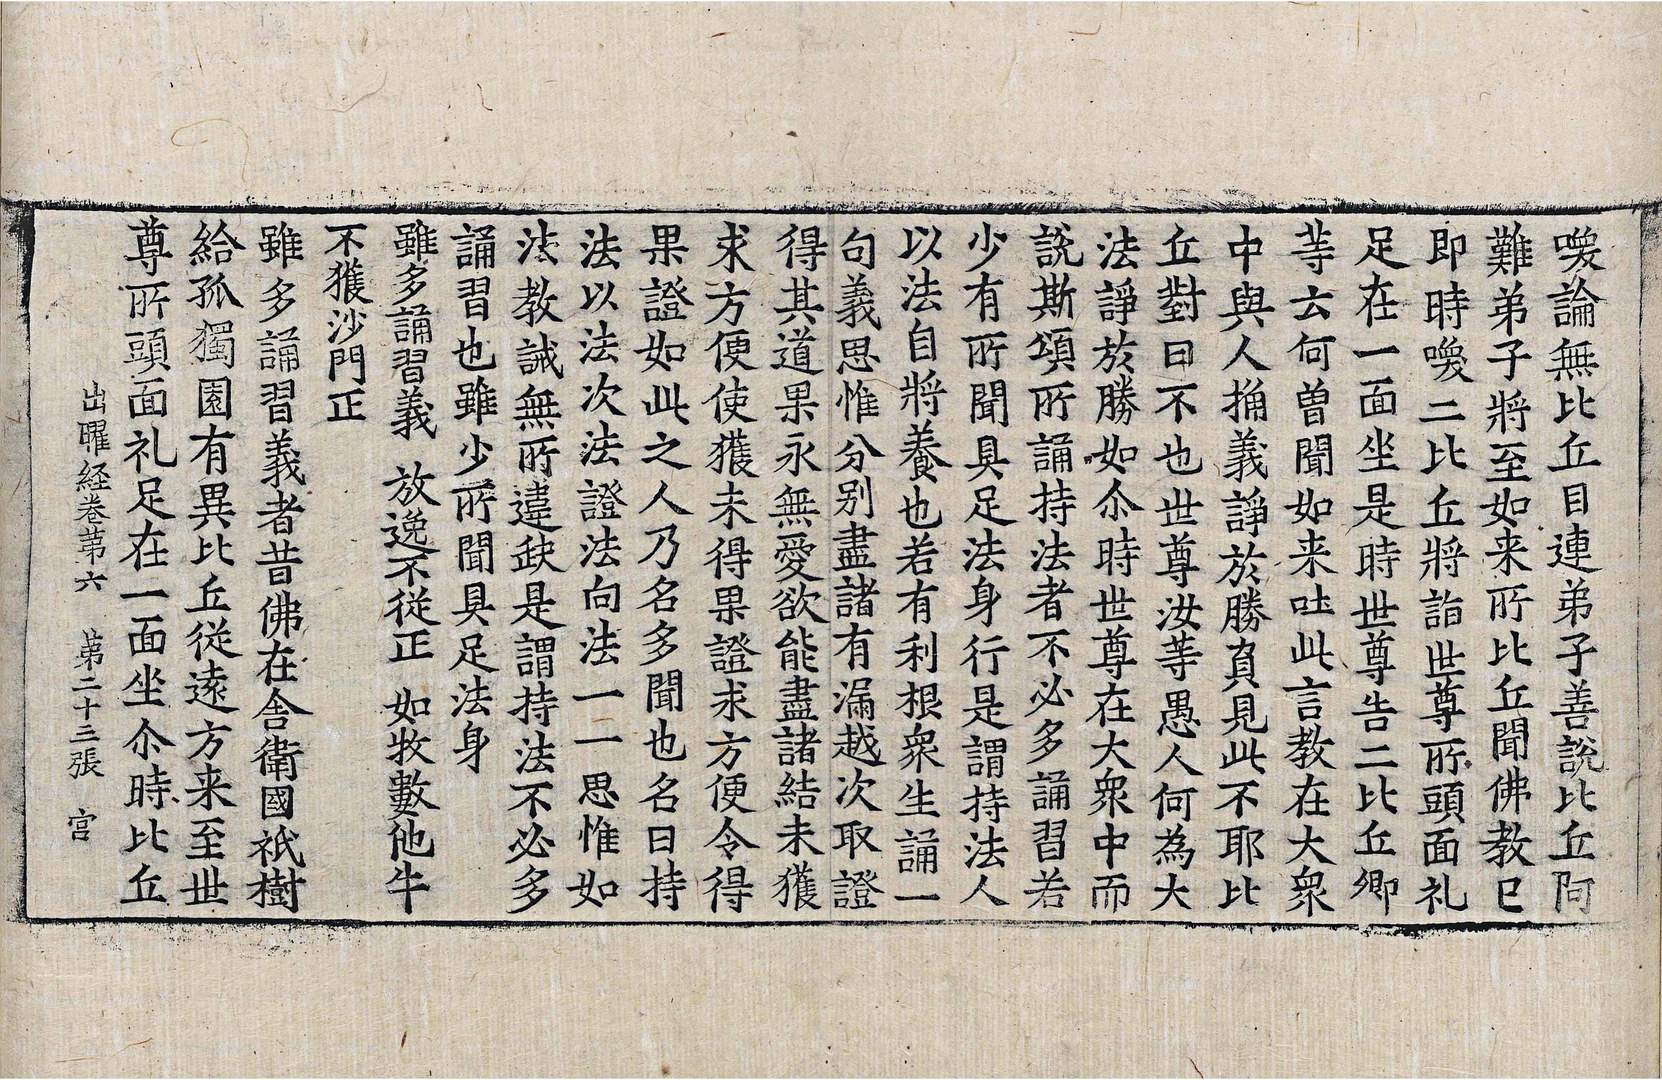 喚論無比丘目連弟子善說比丘阿
難弟子將至如来所比丘聞佛教已
即時喚二比丘將詣世尊所頭面礼
足在一面坐是時世尊告二比丘卿
等云何曾聞如来吐此言教在大衆
中與人捔義諍於勝負見此不耶比
丘對曰不也世尊汝等愚人何為大
法諍於勝如尒時世尊在大衆中而
說斯頌所誦持法者不必多誦習若
少有所聞具足法身行是謂持法人
以法自將養也若有利根衆生誦一
句義思惟分別盡諸有漏越次取證
得其道果永無愛欲能盡諸結未獲
求方便使獲未得果證求方便令得
果證如此之人乃名多聞也名曰持
法以法次法證法向法一一思惟如
法教誡無所違缺是謂持法不必多
誦習也雖少所聞具足法身
雖多誦習義 放逸不従正 如牧數他牛
不獲沙門正
雖多誦習義者昔佛在舎衛國祇樹
給孤獨園有異比丘従遠方来至世
尊所頭面礼足在一面坐尒時比丘
出曜経卷第六 第二十三張 宫